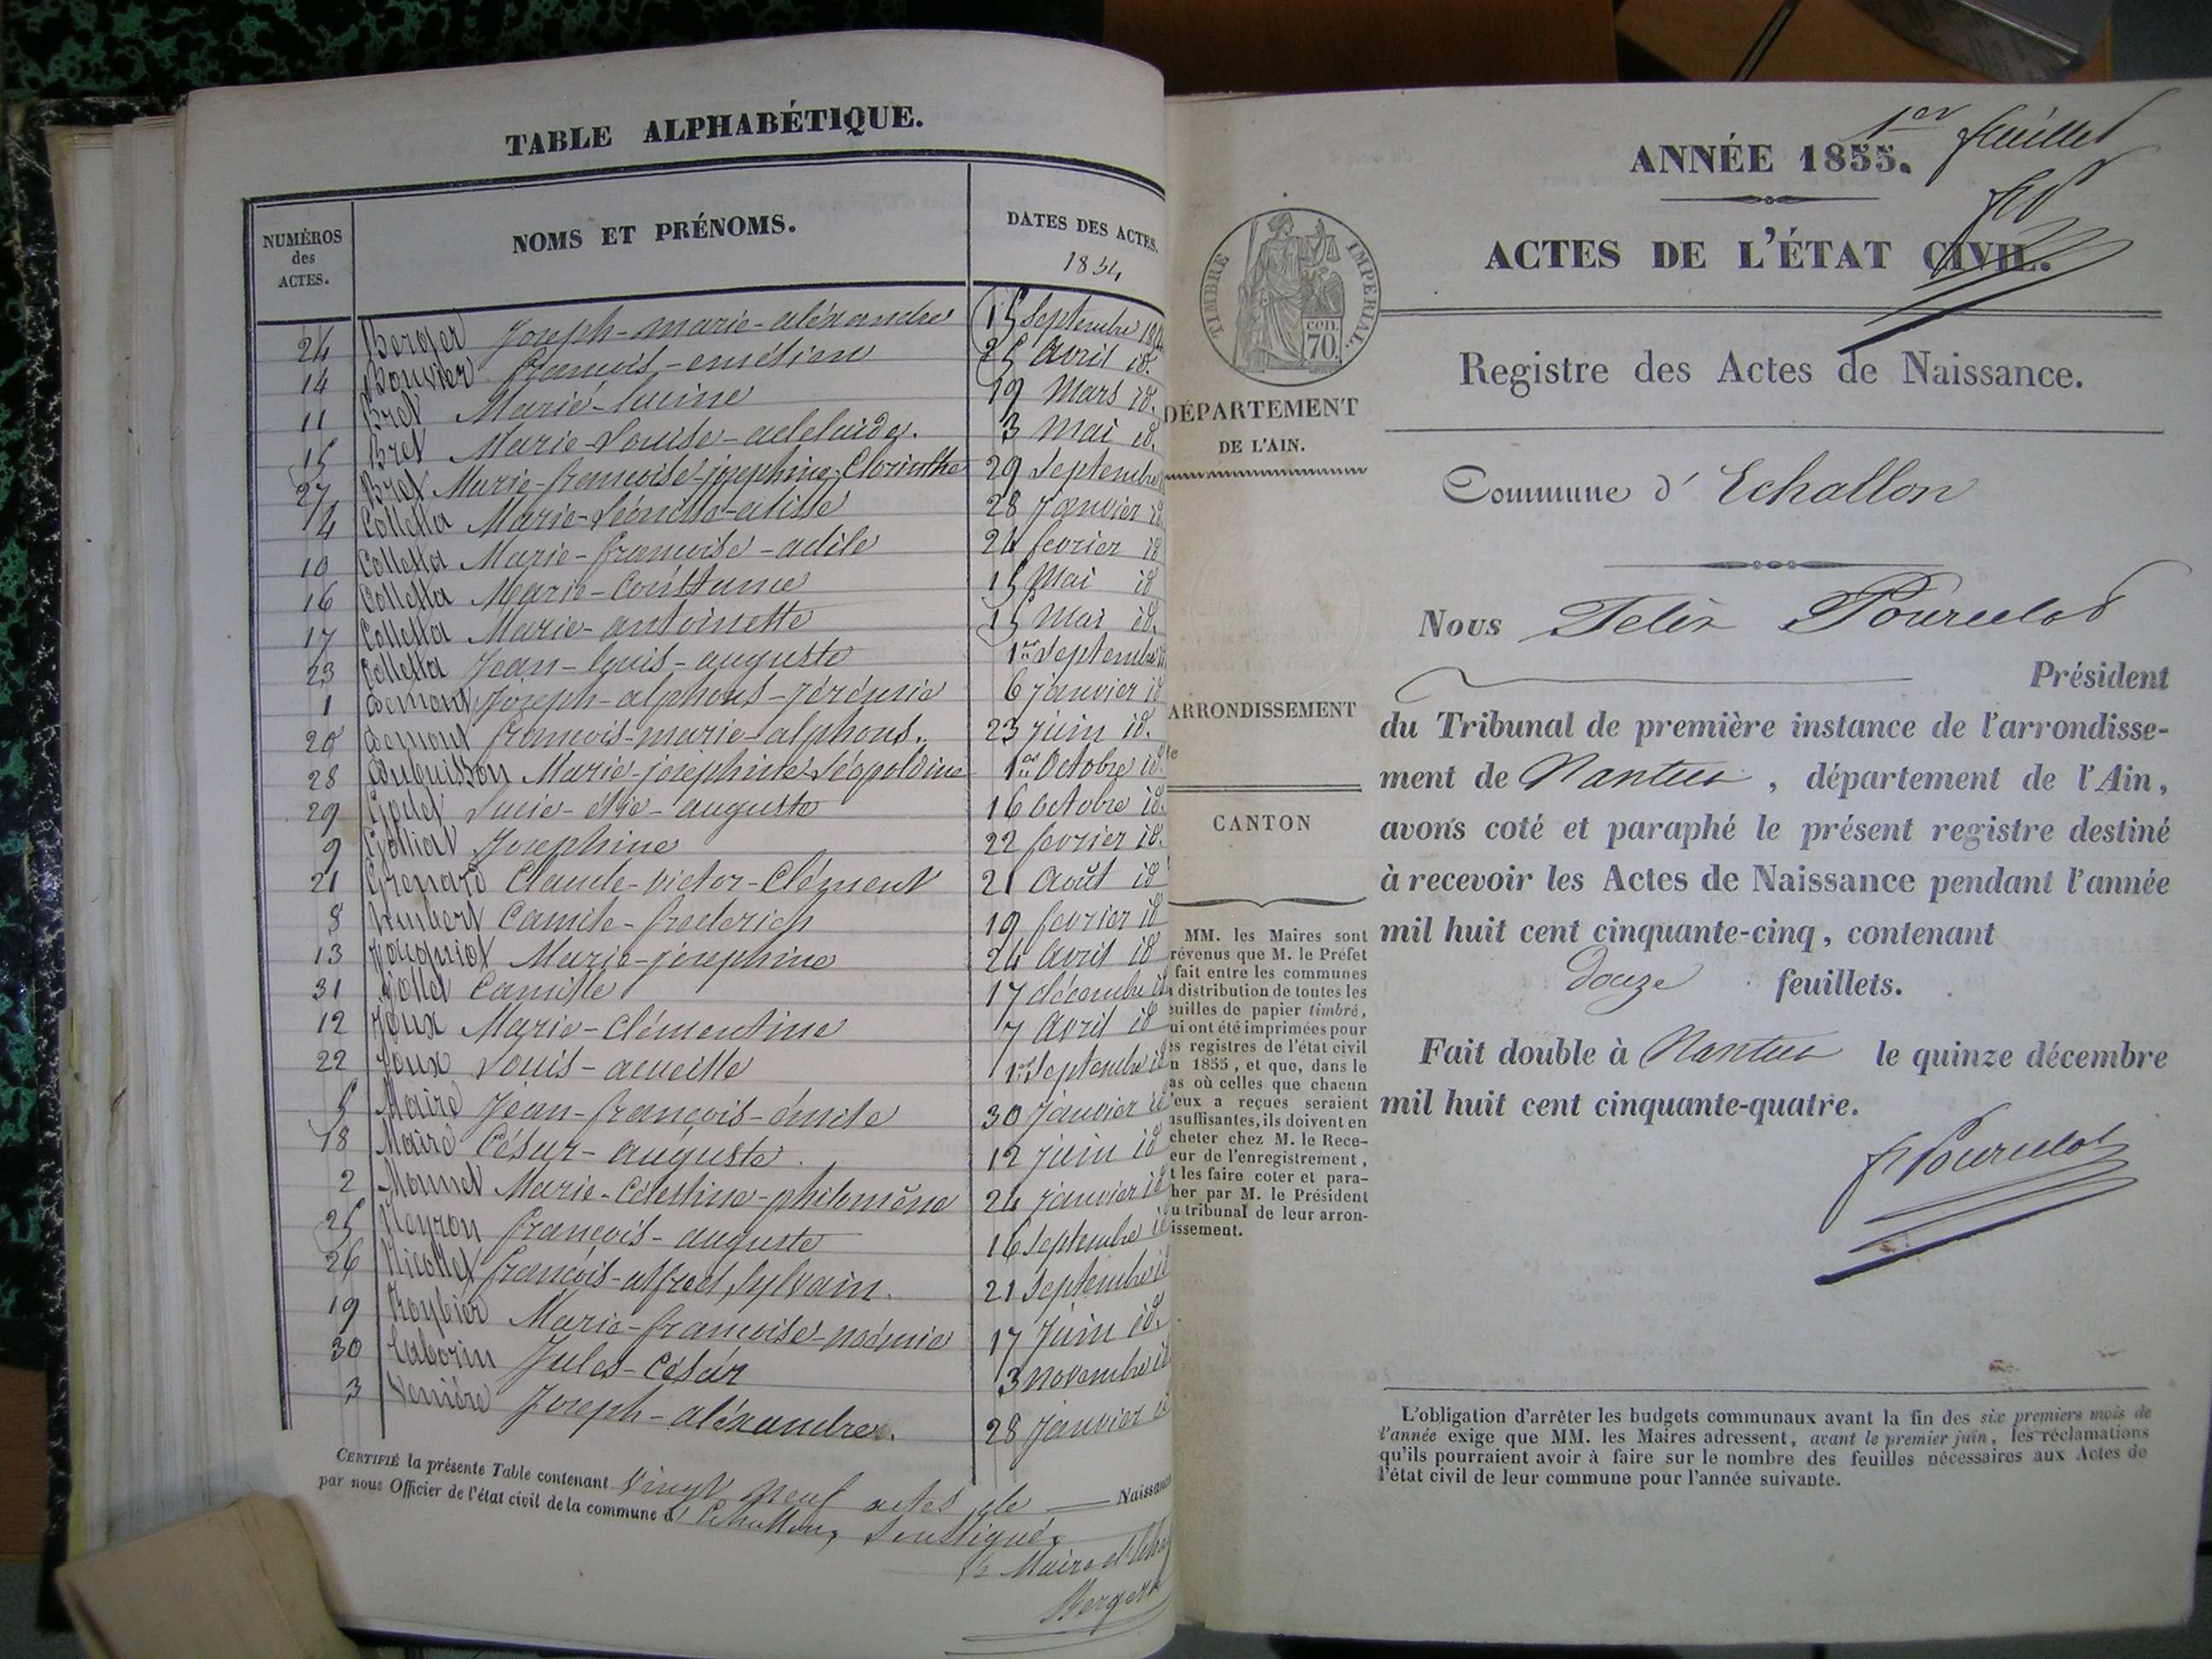 TABLE ALPHABÉTIQUE.
NUMÉROS
des
ACTES.
NOMS ET PRÉNOMS.
DATES DES ACTES.
1854
24 Berger Joseph-marie-aléxandre 15 Septembre
14 Bouvier françois- 25 Avril id.
11 Bret Marie- 19 Mars id.
15 Bret Marie-Louise-adelaide. 3 Mai id.
27 Bret Marie-françoise-josephine-Clorinthe 29 Septembre
4 Colletta Marie-Léonille-alisse 28 Janvier id
10 Colletta Marie-françoise-adile 24 fevrier id
16 Colletta Marie- 15 Mai id
17 Colletta Marie-antoinette 15 Mai id.
23 Colletta Jean-louis-auguste 1er Septembre
1 Demont Joseph-alphons-Jérémie 6 Janvier id
20 Demont françois-marie-alphons. 23 juin id.
28 Dubuisson Marie-josephine Léopoldine 1er Octobre id.
29 Godet auguste 16 Octobre id.
9 Golliat Josephine 22 fevrier id.
21 Grenard Claude-victor-Clément 21 Août id
8 Humbert Camile-frederich 19 fevrier id
13 Marie-josephine 24 Avril id
31 Camille 17 décembre id
12 Joux Marie-Clémentine 7 Avril id
22 Joux Louis- 1er Septembre id
5 Maire Jean-françois-émile 30 Janvier id
18 Maire César-auguste. 12 juin id
2 Monnet Marie-Célestine-philomène 24 janvier id
25 Neyron françois-auguste 16 Septembre id
26 Nicollet françois-alfred, Sylvain. 21 Septembre id
19 Roybier Marie-françoise-noémie 17 Juin id.
30 Taborin Jules-César 3 novembre id
3 Joseph-aléxandre. 28 Janvier id
CERTIFIÉ la présente Table contenant vingt neuf actes de Naissance
par nous Officier de l'état civil de la commune d'Echallon, Soussigné.
Le Maire d'
1er feuillet
ANNÉE 1855.
ACTES DE L'ÉTAT CIVIL.
TIMBRE IMPERIAL
cen.
70.
Registre des Actes de Naissance.
DÉPARTEMENT
DE L'AIN.
Commune d' Echallon
Nous Felix Pourcelot
Président
ARRONDISSEMENT
du Tribunal de première instance de l'arrondisse-
ment de Nantua, département de l'Ain,
CANTON
avons coté et paraphé le présent registre destiné
à recevoir les Actes de Naissance pendant l'année
mil huit cent cinquante-cinq, contenant
douze feuillets.
Fait double à Nantua le quinze décembre
mil huit cent cinquante-quatre.
F Pourcelot
MM. les Maires sont
révenus que M. le Préfet
fait entre les communes
a distribution de toutes les
euilles de papier timbré,
ui ont été imprimées pour
es registres de l'état civil
n 1855, et que, dans le
as où celles que chacun
'eux a reçues seraient
nsuffisantes, ils doivent en
cheter chez M. le Rece-
eur de l'enregistrement,
t les faire coter et para-
her par M. le Président
u tribunal de leur arron-
issement.
L'obligation d'arrêter les budgets communaux avant la fin des six premiers mois de
l'année exige que MM. les Maires adressent, avant le premier juin, les réclamations
qu'ils pourraient avoir à faire sur le nombre des feuilles nécessaires aux Actes de
l'état civil de leur commune pour l'année suivante.